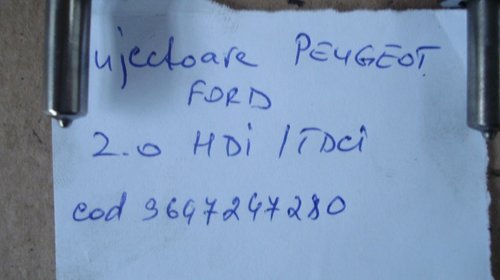 injectoare PEUGEOT
FORD
2.0 HDi / TDCi
cod 9647247280